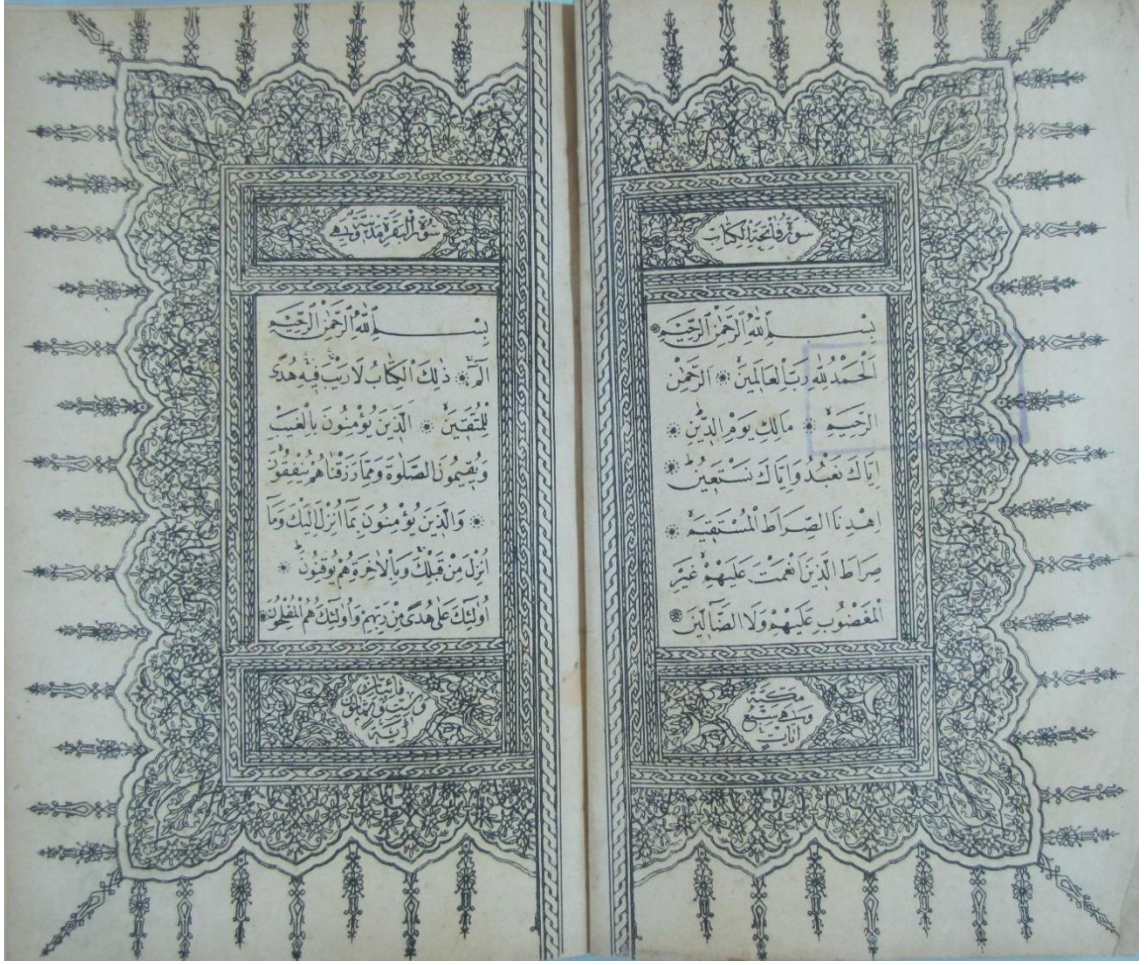 سورة فاتحة الكتاب
بِسْمِ اللّٰهِ الرَّحْمٰنِ الرَّحِيمِ
اَلْحَمْدُ لِلّٰهِ رَبِّ الْعَالَمِينَ ۞ اَلرَّحْمٰنِ
الرَّحِيمِ ۞ مَالِكِ يَوْمِ الدِّينِ ۞
اِيَّاكَ نَعْبُدُ وَاِيَّاكَ نَسْتَعِينُ ۞
اِهْدِنَا الصِّرَاطَ الْمُسْتَقِيمَ ۞
صِرَاطَ الَّذِينَ اَنْعَمْتَ عَلَيْهِمْ غَيْرِ
الْمَغْضُوبِ عَلَيْهِمْ وَلَا الضَّٓالِّينَ ۞
مكية
وهي سبع
آيات
سورة البقرة مدنية وهي
بِسْمِ اللّٰهِ الرَّحْمٰنِ الرَّحِيمِ
الٓمٓ ۞ ذٰلِكَ الْكِتَابُ لَا رَيْبَ فِيهِ هُدًى
لِلْمُتَّقِينَ ۞ اَلَّذِينَ يُؤْمِنُونَ بِالْغَيْبِ
وَيُقِيمُونَ الصَّلٰوةَ وَمِمَّا رَزَقْنَاهُمْ يُنْفِقُونَ
۞ وَالَّذِينَ يُؤْمِنُونَ بِمَٓا اُنْزِلَ اِلَيْكَ وَمَٓا
اُنْزِلَ مِنْ قَبْلِكَ وَبِالْاٰخِرَةِ هُمْ يُوقِنُونَ ۞
اُولٰٓئِكَ عَلٰى هُدًى مِنْ رَبِّهِمْ وَاُولٰٓئِكَ هُمُ الْمُفْلِحُونَ ۞
مائتان
وست وثمانون
آية